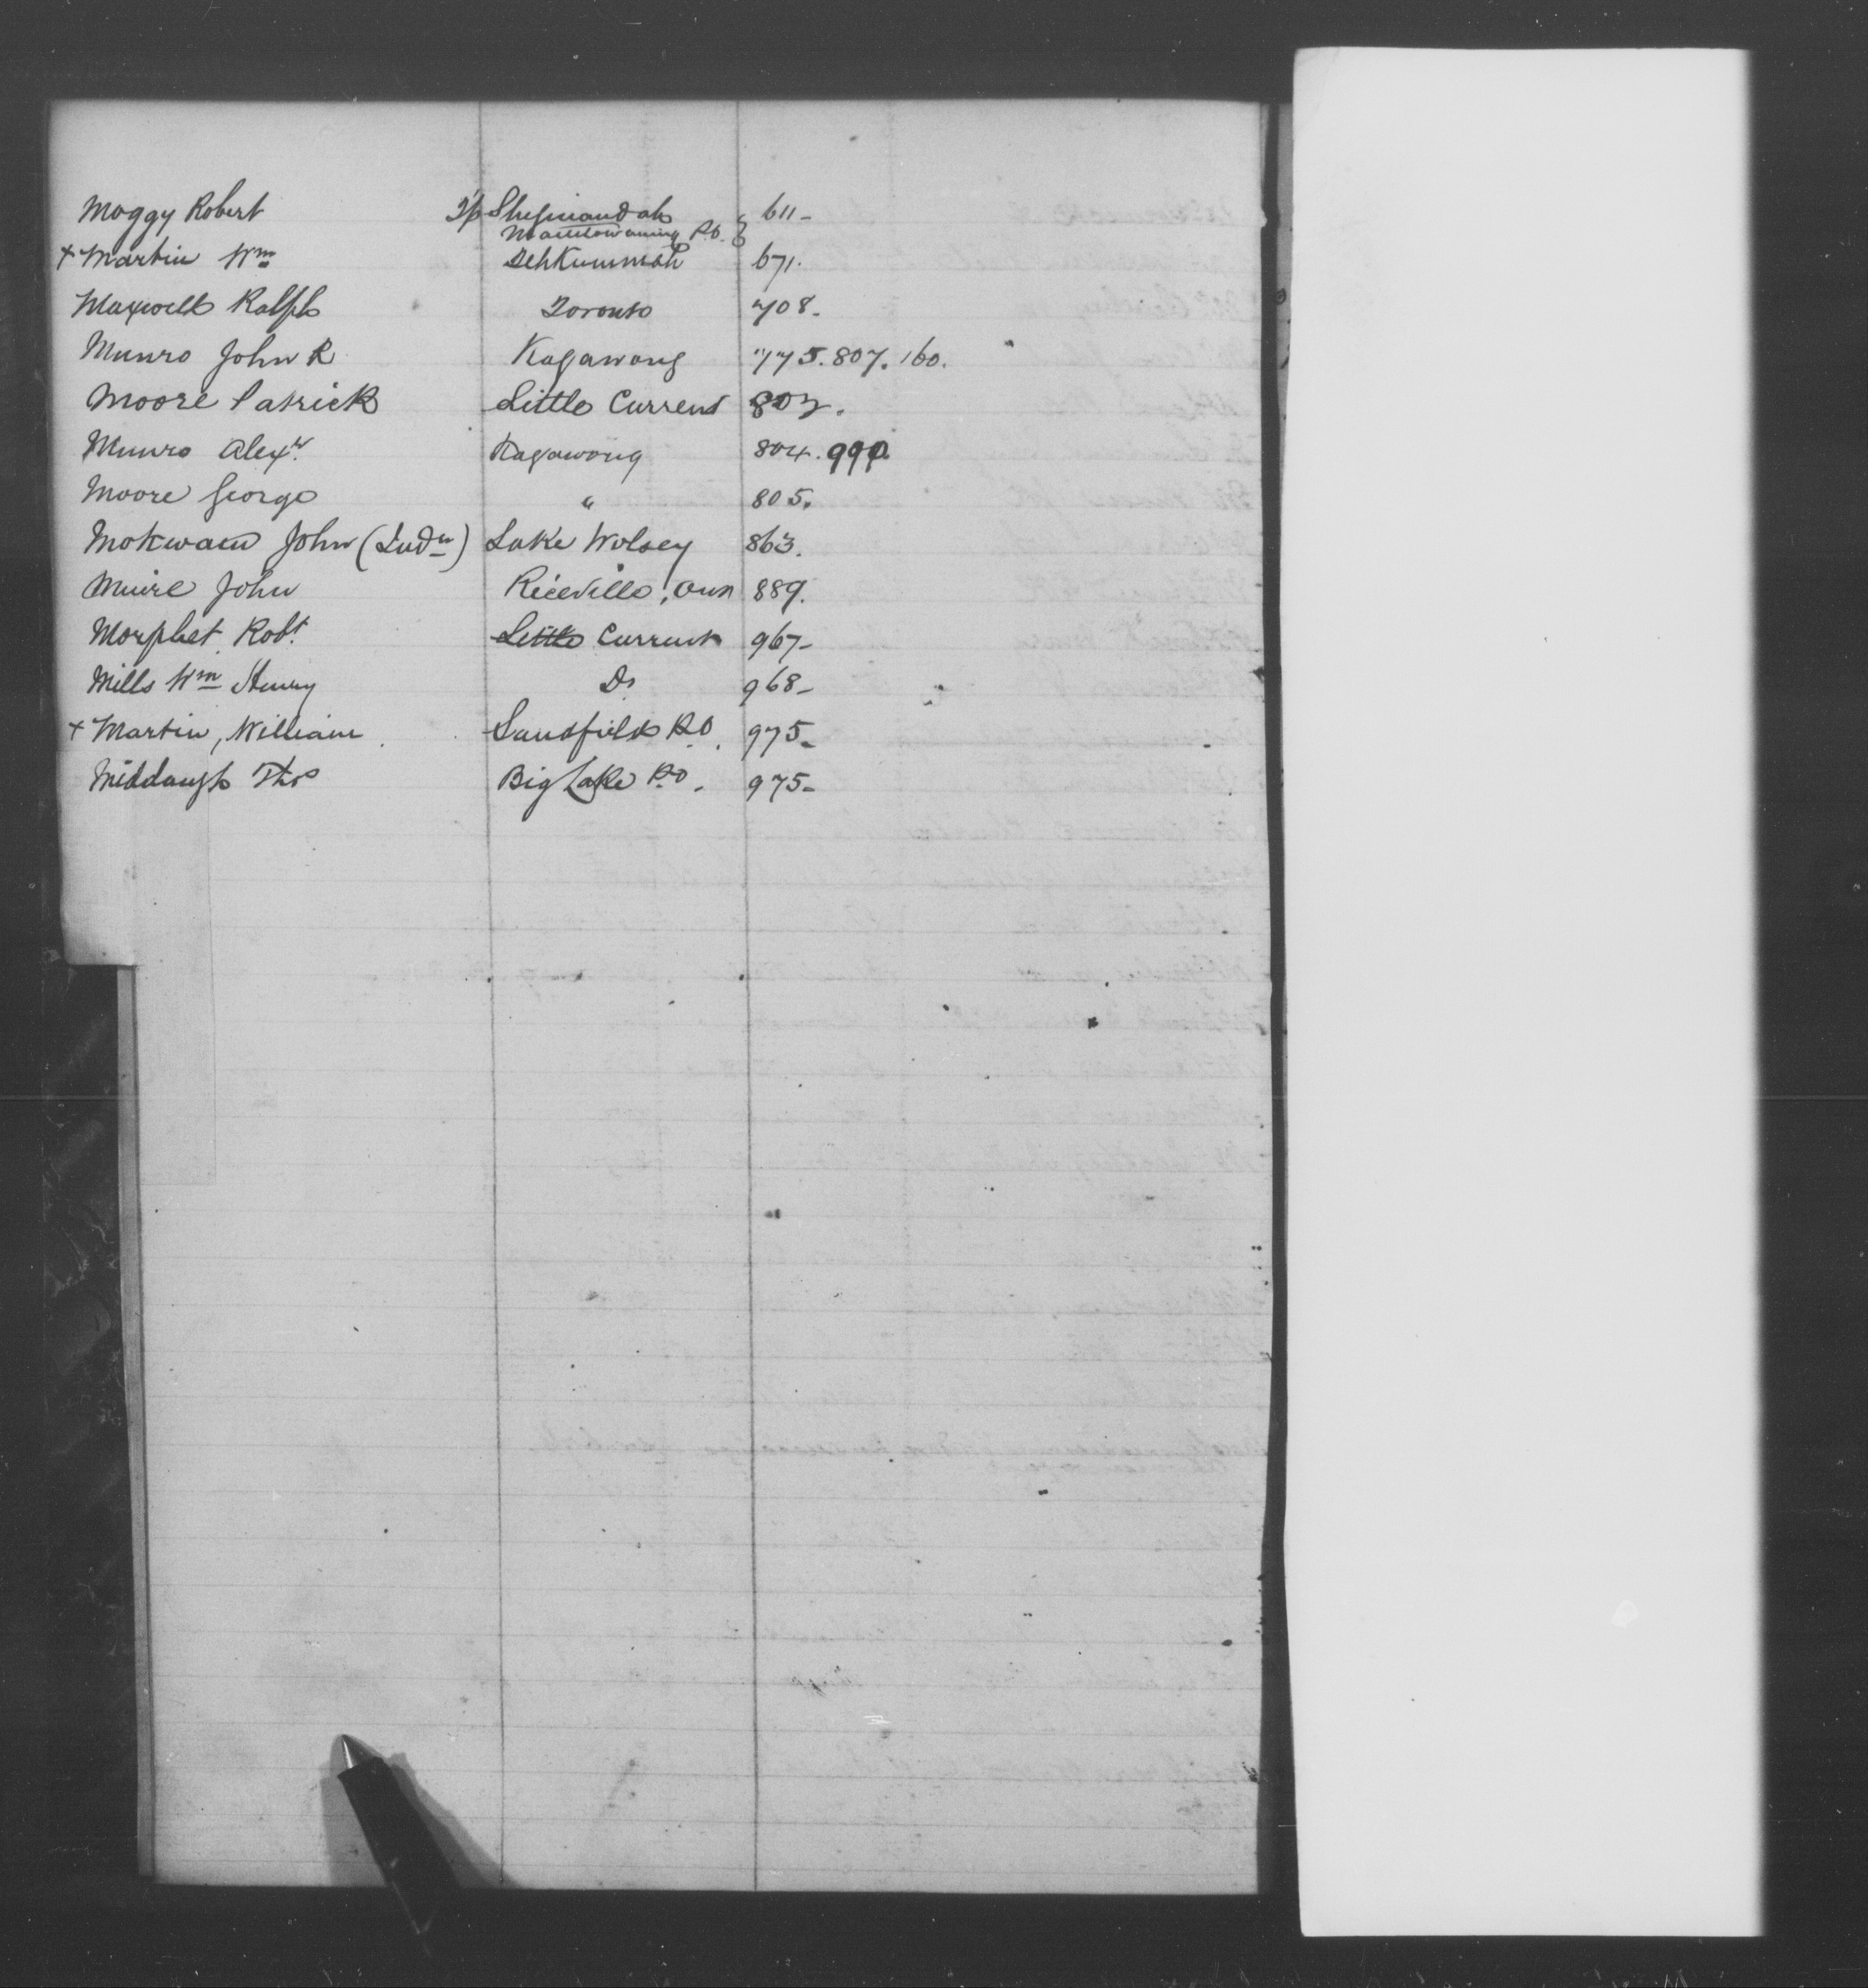 Moggy Robert T'p Sheguiandah 611-
Manitowaning P.O. }
+ Martin Wm Tehkummah 671.
Maxwell Ralph Toronto 708.
Munro John R Kagawong 775. 807. 160.
Moore Patrick Little Current 802.
Munro Alexr. Kagawong 804. 990.
Moore George " 805.
Mokwam John (Indn) Lake Wolsey 863.
Muire John Riceville, Ont 889.
Morphet Robt Little Current 967-
Mills Wm Henry Do 968-
+ Martin, William Sandfield P.O. 975-
Middaugh Thos Big Lake P.O. 975-